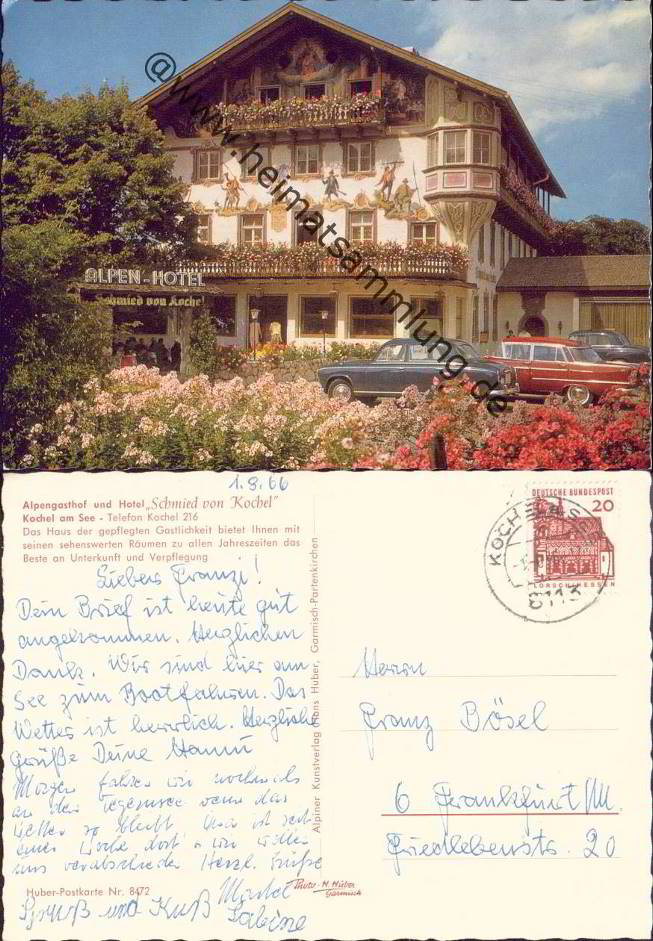 @www.heimatsammlung.de
ALPEN-HOTEL
Schmied von Kochel
1.8.66
Alpengasthof und Hotel „Schmied von Kochel"
Kochel am See - Telefon Kochel 216
Das Haus der gepflegten Gastlichkeit bietet Ihnen mit
seinen sehenswerten Räumen zu allen Jahreszeiten das
Beste an Unterkunft und Verpflegung
Lieber Franzi!
Dein Brief ist heute gut
angekommen. Herzlichen
Dank. Wir sind hier am
See zum Bootfahren. Das
Wetter ist herrlich. Herzliche
Grüße Deine
Morgen fahren wir nochmals
an den Tegernsee wenn das
Wetter so bleibt. ist seit
einer Woche dort u. wir wollen
uns verabschieden Herzl. Grüße
Gruß und Kuß
Sabine
Huber-Postkarte Nr. 8472
Photo-H. Huber
Garmisch
Alpiner Kunstverlag Hans Huber, Garmisch-Partenkirchen
DEUTSCHE BUNDESPOST
20
LORSCH/HESSEN
KOCHEL A. SEE
8113
Herrn
Franz Bösel
6 Frankfurt/M.
Friedlebenstr. 20